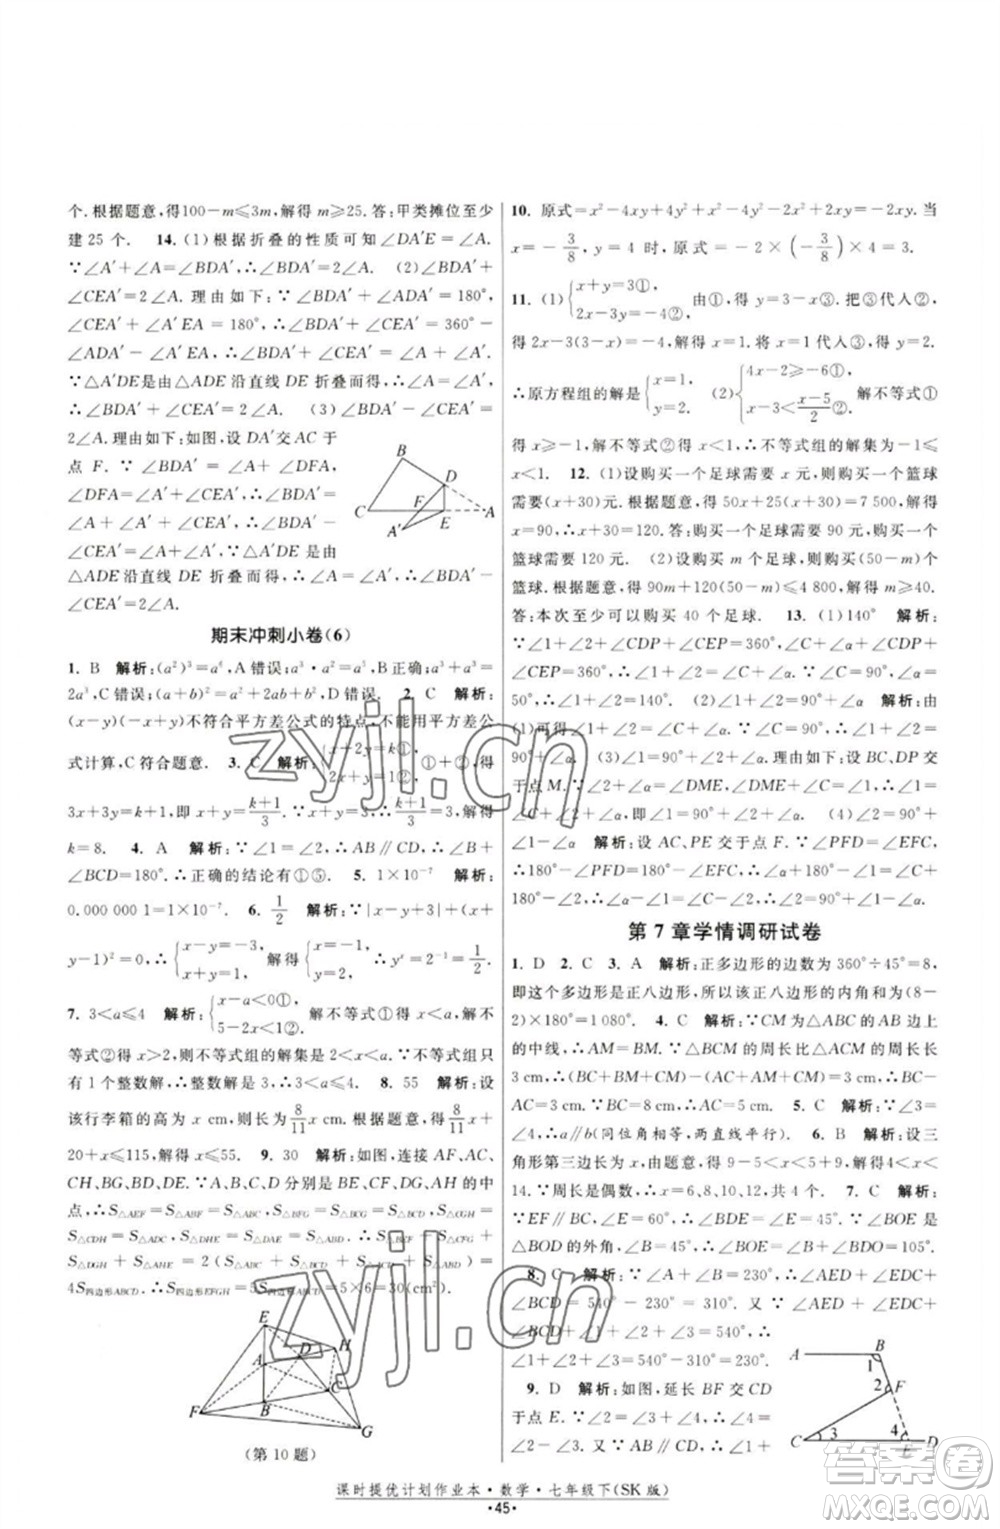 个. 根据题意,得100－m⩽3m,解得 m⩾25. 答:甲类摊位至少
建 25 个. 14. (1)根据折叠的性质可知∠DA′E＝∠A.
∵∠A′＋∠A＝∠BDA′,∴∠BDA′＝2∠A. (2)∠BDA′＋
∠CEA′＝2∠A. 理由如下:∵∠BDA′＋∠ADA′＝180°,
∠CEA′＋∠A′EA＝180°,∴∠BDA′＋∠CEA′＝360°－
∠ADA′－∠A′EA,∴∠BDA′＋∠CEA′＝∠A′＋∠A.
∵△A′DE是由△ADE沿直线DE折叠而得,∴∠A＝∠A′,
∴∠BDA′＋∠CEA′＝2∠A. (3)∠BDA′－∠CEA′＝
2∠A. 理由如下:如图,设 DA′交 AC 于
点 F. ∵∠BDA′＝∠A＋∠DFA,
∠DFA＝∠A′＋∠CEA′,∴∠BDA′＝
∠A＋∠A′＋∠CEA′,∴∠BDA′－
∠CEA′＝∠A＋∠A′. ∵△A′DE是由
△ADE 沿直线 DE 折叠而得,∴∠A＝
∠A′,∴∠BDA′－∠CEA′＝2∠A.
B
D
F
C
E
A
A′
期末冲刺小卷(6)
1. B 解析:(a²)³＝a⁶,A 错误;a³·a＝a⁴,B 正确;a³＋a³＝
2a³,C 错误;(a＋b)²＝a²＋2ab＋b²,D 错误. 2. C 解析:
(x－y)(x－y)不符合平方差公式的特点,不能用平方差公
式计算,C 符合题意. 3. C 解析:{x＋2y＝k①, 2x＋y＝1②,①＋②,得
3x＋3y＝k＋1,即 x＋y＝(k＋1)/3. ∵x＋y＝3,∴(k＋1)/3＝3,解得
k＝8. 4. A 解析:∵∠1＝∠2,∴AB∥CD,∴∠B＋
∠BCD＝180°. ∴正确的结论有①⑤. 5. 1×10⁻⁷ 解析:
0.000 000 1＝1×10⁻⁷. 6. 1/2 解析:∵|x－y＋3|＋(x＋
y－1)²＝0,∴{x－y＝－3, x＋y＝1,解得{x＝－1, y＝2. ∴yˣ＝2⁻¹＝1/2.
7. 3＜a⩽4 解析:{x－a＜0①, 5－2x＜1②. 解不等式①得 x＜a,解不
等式②得 x＞2,则不等式组的解集为 2＜x＜a. ∵不等式组只
有 1 个整数解,∴整数解为 3,∴3＜a⩽4. 8. 55 解析:设
该行李箱的高为 x cm,则长为 8/11 x cm. 根据题意,得 8/11 x＋
20＋x⩽115,解得 x⩽55. 9. 30 解析:如图,连接 AF,AC,
CH,BD. ∵A,B,C,D 分别是 HE,EF,FG,GH 的中
点,∴S△AEF＝S△ABF＝S△ABC,S△AEH＝S△ADH＝S△ABD,∴
S△CDH＝S△CDG＝S△ACD,S△BCF＝S△CFG＝S△BCD,∴
4S四边形ABCD,S四边形EFGH＝5S四边形ABCD＝5×6＝30(cm²).
E
H
A
D
B
C
F
G
(第 10 题)
10. 原式＝x²－4xy＋4y²＋x²－4y²－2x²＋2xy＝－2xy. 当
x＝－3/8,y＝4 时,原式＝－2×(－3/8)×4＝3.
11. (1){x＋y＝3①, 2x－3y＝－4②, 由①,得 y＝3－x③. 把③代入②,
得 2x－3(3－x)＝－4,解得 x＝1. 将 x＝1 代入③,得 y＝2.
∴原方程组的解是{x＝1, y＝2. (2){4x－2⩾－6①, x－3＜(x－5)/2②. 解不等式①
得 x⩾－1,解不等式②得 x＜1,∴不等式组的解集为－1⩽
x＜1. 12. (1)设购买一个足球需要 x 元,则购买一个篮球
需要(x＋30)元. 根据题意,得 50x＋25(x＋30)＝7 500,解得
x＝90,∴x＋30＝120. 答:购买一个足球需要 90 元,购买一个
篮球需要 120 元. (2)设购买 m 个足球,则购买(50－m)个
篮球. 根据题意,得 90m＋120(50－m)⩽4 800,解得 m⩾40.
答:本次至少可以购买 40 个足球. 13. (1)140° 解析:
∵∠1＋∠2＋∠CDP＋∠CEP＝360°,∠C＋∠α＋
∠CDP＋∠CEP＝360°,∴∠1＋∠2＝∠C＋∠α. ∵∠α＝
50°,∴∠1＋∠2＝140°. (2)∠1＋∠2＝90°＋∠α 解析:由
(1)可得∠α＋∠C＝∠1＋∠2,∴∠1＋∠2＝90°＋∠α.
(3)∠1＝90°＋∠2＋∠α. 理由如下:设 BC,DP 相
交于点 M. ∵∠2＋∠α＝∠DME,∠DME＋∠C＝∠1,
∴∠1＝∠C＋∠2＋∠α＝90°＋∠2＋∠α. (4)∠2＝90°＋
∠1－∠α 解析:设 AC,PE 交于点 F. ∵∠PFD＝∠EFC,
∴180°－∠PFD＝180°－∠EFC,∴∠α＋180°－∠1＝∠C＋
180°－∠2,∴∠2＝90°＋∠1－∠α.
第 7 章学情调研试卷
1. D 2. C 3. A 解析:正多边形的边数为 360°÷45°＝8,
即这个多边形是正八边形,所以该正八边形的内角和为(8－
2)×180°＝1 080°. 4. C 解析:∵CM 为△ABC 的 AB 边上
的中线,∴AM＝BM. ∵△BCM 的周长比△ACM 的周长长
3 cm,∴(BC＋BM＋CM)－(AC＋AM＋CM)＝3 cm,∴BC－
AC＝3 cm. ∵BC＝8 cm,∴AC＝5 cm. 5. C 解析:∵∠3＝
∠4,∴a∥b(同位角相等,两直线平行). 6. B 解析:设三
角形第三边长为 x. 根据题意,得 9－5＜x＜9＋5,即 4＜x＜
14. ∵x是偶数,∴x＝6,8,10,12,共 4 个. 7. A 解析:
∵EF∥BC,∴∠BOE＝∠B＝45°. ∵∠BOE 是
△BOD 的外角,∴∠BDE＝∠D＋∠BOE＝105°.
8. C 解析:∵∠A＋∠B＝∠AED＋∠EDC＋
∠BCD＝540°－180°＝360°. 又∵∠AED＋∠EDC＋
∠BCD＝540°－∠A－∠B,∴
∠1＋∠2＋∠3＝540°－360°＝180°.
9. D 解析:如图,延长 BF 交 CD 于
点 E. ∵AB∥CD,∴∠1＝∠4. 又∵∠2＝
A
B
1
2
F
3
4
C
E
D
课时提优计划作业本·数学·七年级下(SK 版)
·45·
zyjl.cn
zyjl.cn
答案圈
MXQE.COM